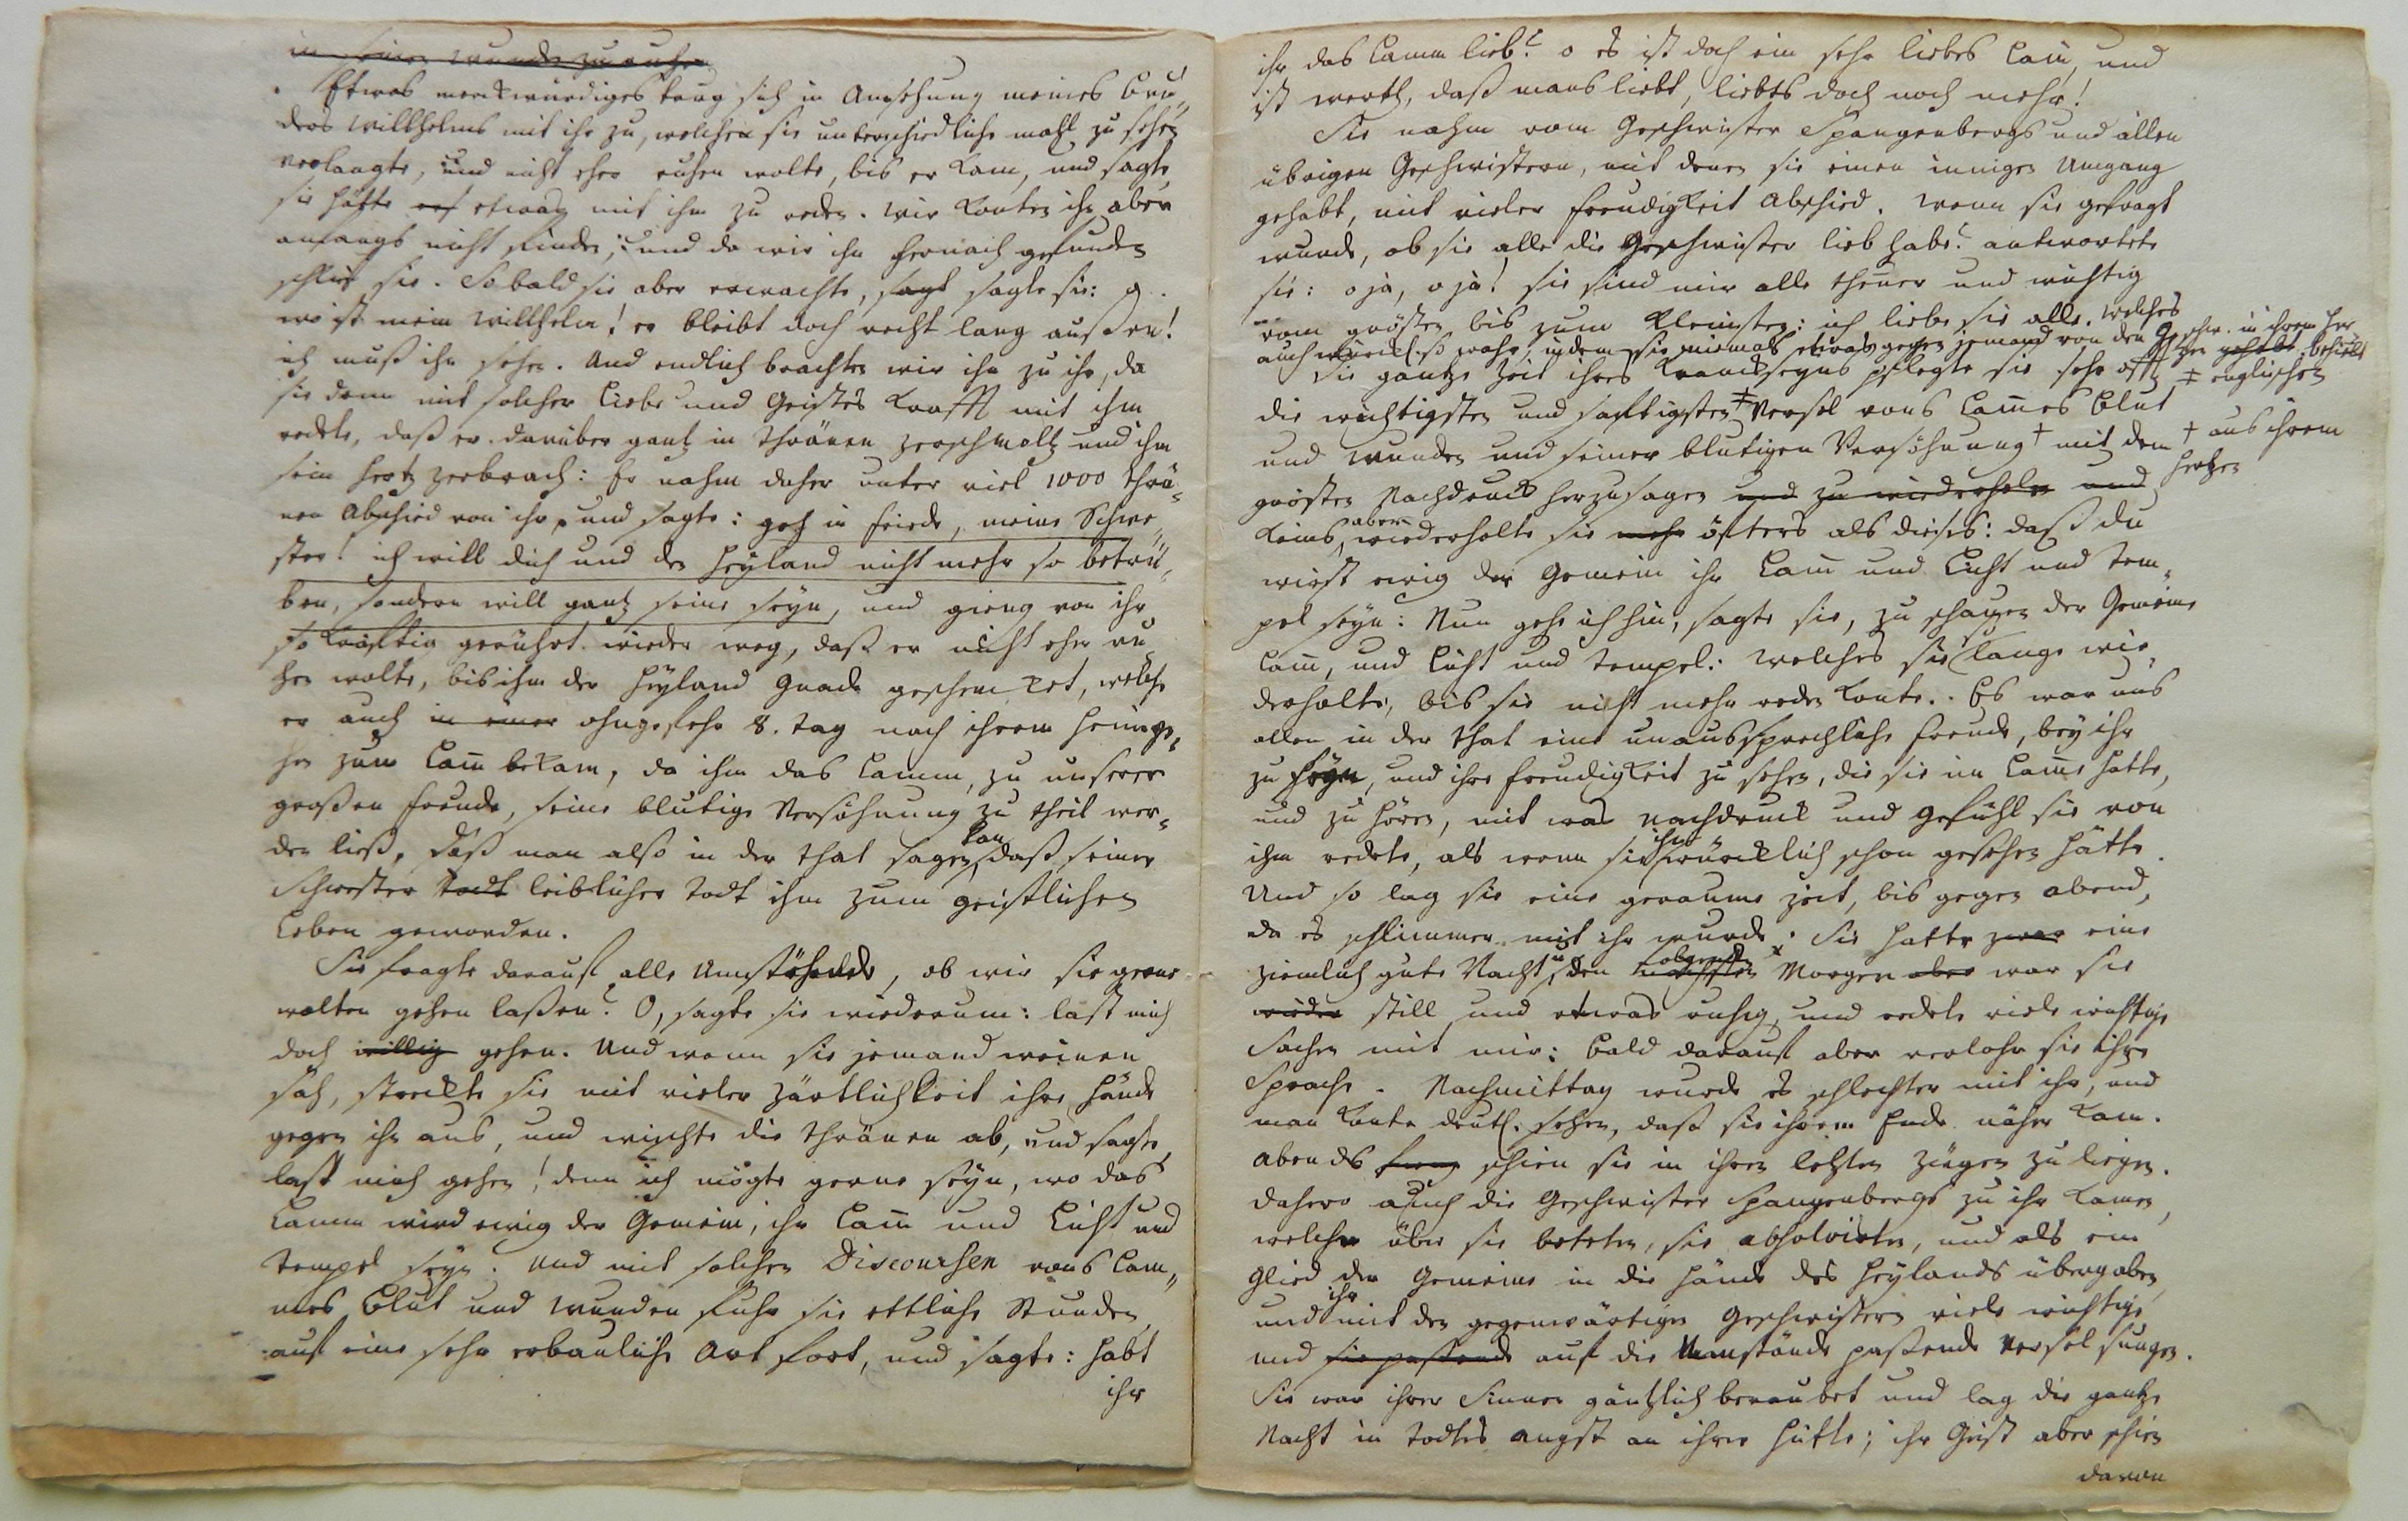 in seinen Wunden zu ruhen
Etwas merckwürdiges trug sich in Ansehung meines Bru„
ders Willhelms mit ihr zu, welchen sie unterschiedliche mahl zu sehen
verlangte, und nicht eher ruhen wolte, bis er kam, und sagte
sie hätte etwas mit ihm zu reden. Wir konten ihn aber
anfangs nicht finden; und da wir ihn hernach gefunden
schlief sie. So bald sie aber erwachte, sagt sagte sie:
wo ist mein Willhelm! er bleibt doch recht lang aussen!
ich muß ihn sehen. Und endlich brachten wir ihn zu ihr, da
sie denn mit solcher Liebe und Geistes Krafft mit ihm
redete, daß er darüber gantz in Thränen zerschmoltz und ihm
sein Hertz zerbrach: Er nahm daher unter viel 1000 Thrä„
nen Abschied von ihr, und sagte: geh in Friede, meine Schwe„
ster! ich will dich und den Heyland nicht mehr so betrü„
ben, sondern will gantz seine seyn, und gieng von ihr
so kräftig gerührt wieder weg, daß er nicht eher ru„
hen wolte, bis ihm der Heyland Gnade geschencket, welche
er auch in einer ohngefehr 8. Tag nach ihrem Heimge„
hen zum Lam̅ bekam, da ihm das Lamm, zu unserer
großen Freude, seine blutige Versöhnung zu theil wer„
den ließ, daß man also in der That sagen kan, daß seiner
Schwester Todt leiblicher Todt ihm zum geistlichen
Leben geworden.
Sie fragte darauf alle Umstehende, ob wir sie gerne
wolten gehen laßen? O, sagte sie wiederum: last mich
doch willig gehen. Und wenn sie jemand weinen
sah, streckte sie mit vieler Zärtlichkeit ihre Hände
gegen ihn aus, und wischte die Thränen ab, und sagte,
last mich gehen! denn ich mögte gerne seyn, wo das
Lamm wird ewig der Gemein, ihr Lam̅ und Licht und
Tempel seyn. Und mit solchen Discoursen vons Lam„
mes Blut und Wunden fuhr sie ettliche Stunden
auf eine sehr erbauliche Art fort, und sagte: habt
ihr
ihr das Lamm lieb? o es ist doch ein sehr liebes Lam̅, und
ist werth, daß mans liebt, liebts doch noch mehr!
Sie nahm vom Geschwister Spangenbergs und allen
übrigen Geschwistern, mit denen sie einen innigen Umgang
gehabt, mit vieler Freudigkeit Abschied. Wenn sie gefragt
wurde, ob sie alle die Geschwister lieb habe? antwortete
sie: o ja, o ja! sie sind mir alle theuer und wichtig
vom grösten bis zum kleinsten: ich liebe sie alle. welches
auch würckl. so wahr, indem sie niemals etwas gegen jemand von den Geschw. in ihrem Her
zen gehabt. behielt
Die gantze Zeit ihres Kranckseyns pflegte sie sehr offt ‡ englischen
die wichtigsten und saftigsten ‡ Versel vons Lam̅es Blut
und Wunden und seiner blutigen Versöhnung † mit dem † aus ihrem
Hertzen
grösten Nachdruck herzusagen und zu wiederholen und
keins aber wiederholte sie mehr öfters als dieses: daß du
wirst ewig der Gemein ihr Lam̅ und Licht und Tem„
pel seyn: Nun gehe ich hin, sagte sie, zu schauen der Gemeine
Lam̅, und Licht und Tempel: welches sie so lange wie„
derholte, bis sie nicht mehr reden konte. Es war uns
allen in der That eine unaussprechliche Freude, bey ihr
zu seyn, und ihre Freudigkeit zu sehen, die sie im Lam̅e hatte,
und zu hören, mit was Nachdruck und Gefühl sie von
ihm redete, als wenn sie ihn würcklich schon gesehen hätte.
Und so lag sie eine geraume Zeit, bis gegen Abend,
da es schlimmer mit ihr wurde. Sie hatte zwar eine
ziemlich gute Nacht u. den folgenden nächsten Morgen aber war sie
wieder still und etwas ruhig, und redete viele wichtige
Sachen mit mir: Bald darauf aber verlohr sie ihre
Sprache. Nachmittag wurde es schlechter mit ihr, und
man konte deutl. sehen, daß sie ihrem Ende näher kam.
Abends schien sie in ihren letzten Zügen zu liegen.
Dahero auch die Geschwister Spangenbergs zu ihr kamen,
welche über sie beteten, sie absolvirten, und als ein
Glied der Gemeine in die Hände des Heylands übergaben
und ihr mit den gegenwärtigen Geschwistern viele wichtige
und sie passende auf die Umstände paßende Versel sungen.
Sie war ihrer Sinnen gäntzlich beraubet und lag die gantze
Nacht in Todtes Angst an ihrer Hütte; ihr Geist aber schien
davon